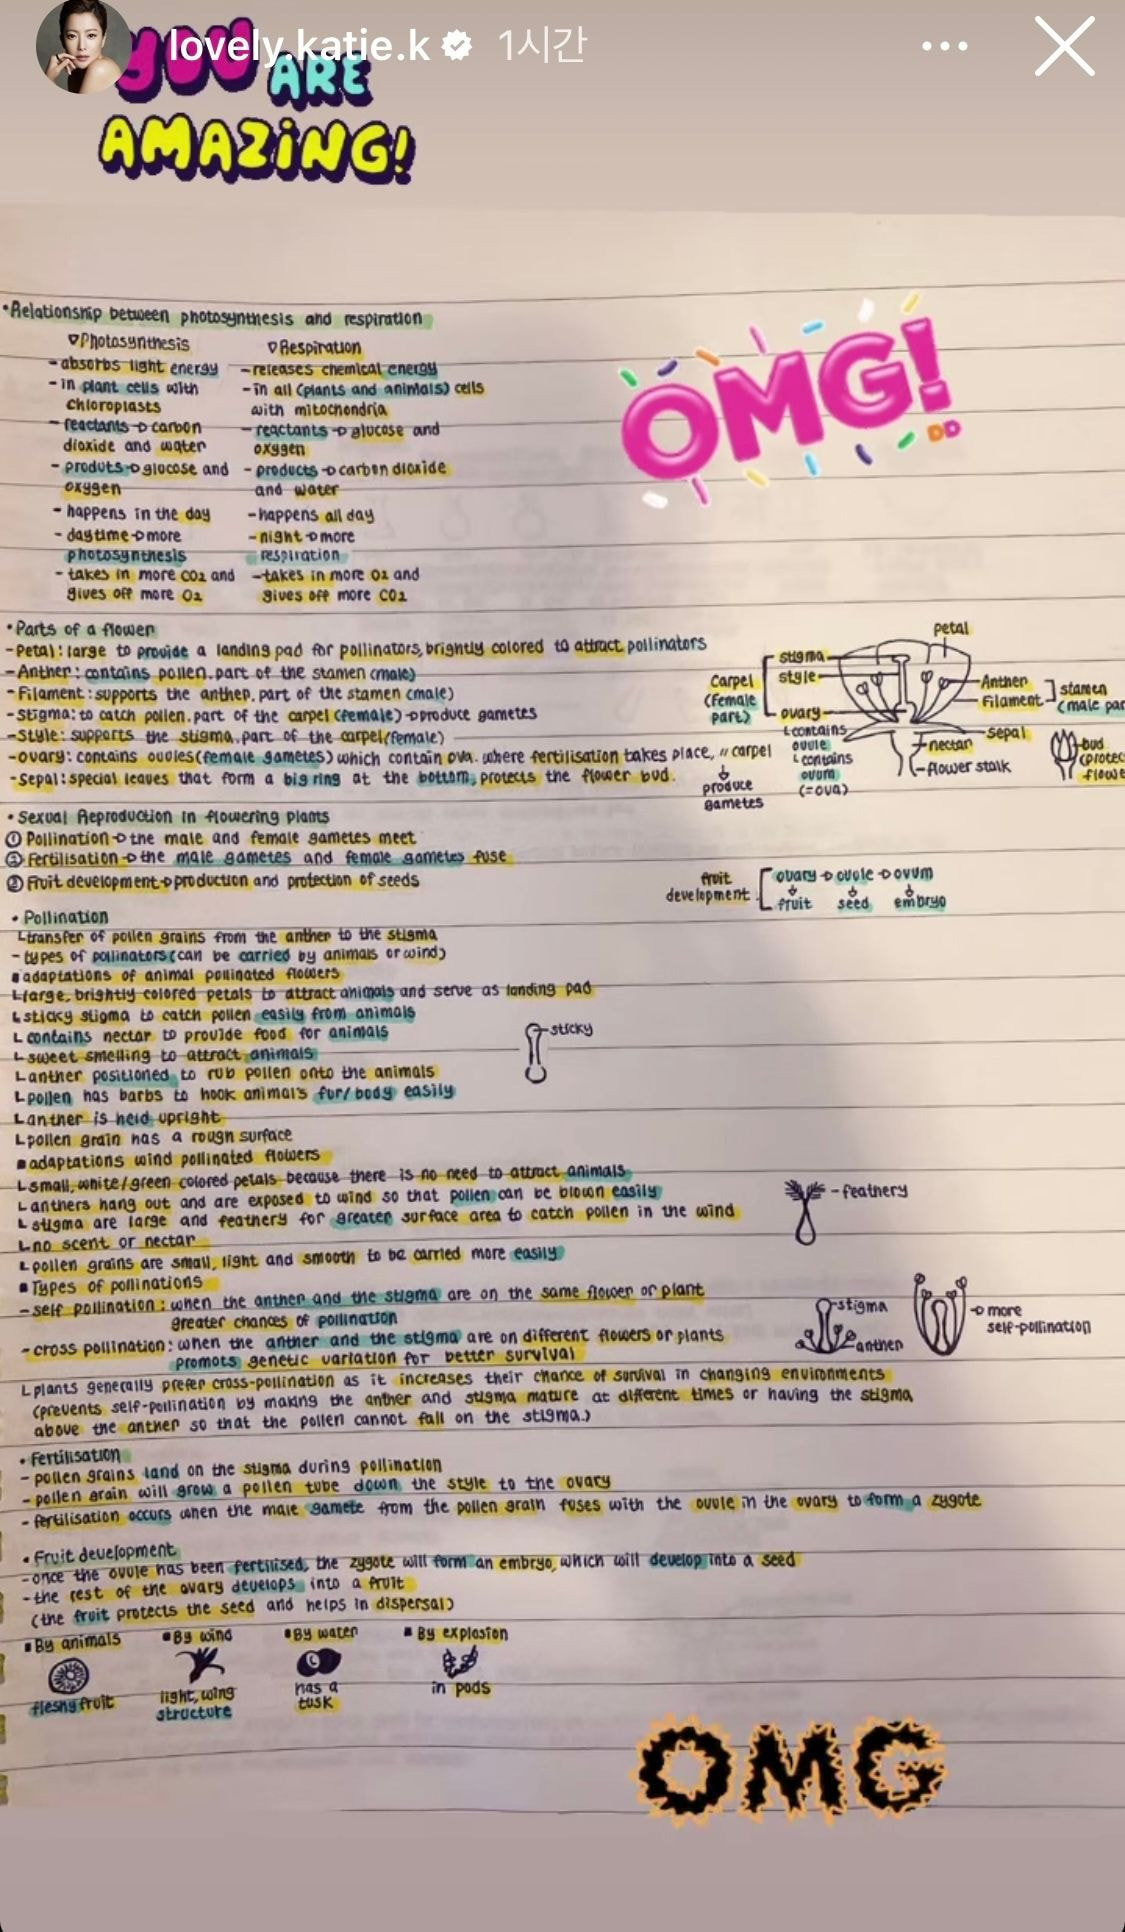 YOU ARE
AMAZING!
lovely.katie.k 1시간
OMG!
DD
•Relationship between photosynthesis and respiration
▽Photosynthesis
- absorbs light energy
- in plant cells with
chloroplasts
- reactants → carbon
dioxide and water
- produts → glucose and
oxygen
- happens in the day
- daytime → more
photosynthesis
- takes in more CO2 and
gives off more O2
▽Respiration
- releases chemical energy
- in all (plants and animals) cells
with mitochondria
- reactants → glucose and
oxygen
- products → carbon dioxide
and water
- happens all day
- night → more
respiration
- takes in more O2 and
gives off more CO2
•Parts of a flower
- Petal: large to provide a landing pad for pollinators, brightly colored to attract pollinators
- Anther: contains pollen. part of the stamen (male)
- Filament: supports the anther. part of the stamen (male)
- Stigma: to catch pollen. part of the carpel (female) → produce gametes
- Style: supports the stigma. part of the carpel (female)
- ovary: contains ovules (female gametes) which contain ova. where fertilisation takes place, " carpel
↓
produce
gametes
- Sepal: special leaves that form a big ring at the bottom, protects the flower bud.
petal
stigma
style
ovary
Carpel
(female
part)
Anther
Filament
stamen
(male par
sepal
nectar
flower stalk
└contains
ovule
└contains
ovum
(=ova)
bud
(protec
flowe
• Sexual Reproduction in flowering plants
① Pollination → the male and female gametes meet
② Fertilisation → the male gametes and female gametes fuse
③ Fruit development → production and protection of seeds
fruit
development
ovary → ovule → ovum
↓ ↓ ↓
fruit seed embryo
• Pollination
└transfer of pollen grains from the anther to the stigma
- types of pollinators (can be carried by animals or wind)
▪adaptations of animal pollinated flowers
└large, brightly colored petals to attract animals and serve as landing pad
└sticky stigma to catch pollen easily from animals
└contains nectar to provide food for animals
└sweet smelling to attract animals
└anther positioned to rub pollen onto the animals
└pollen has barbs to hook animal's fur/body easily
└anther is held upright
└pollen grain has a rough surface
sticky
▪adaptations wind pollinated flowers
└small, white/green colored petals because there is no need to attract animals
└anthers hang out and are exposed to wind so that pollen can be blown easily
└stigma are large and feathery for greater surface area to catch pollen in the wind
└no scent or nectar
└pollen grains are small, light and smooth to be carried more easily
- feathery
▪Types of pollinations
- self pollination: when the anther and the stigma are on the same flower or plant
greater chances of pollination
- cross pollination: when the anther and the stigma are on different flowers or plants
promots genetic variation for better survival
stigma
anther
→ more
self-pollination
└plants generally prefer cross-pollination as it increases their chance of survival in changing environments
(prevents self-pollination by making the anther and stigma mature at different times or having the stigma
above the anther so that the pollen cannot fall on the stigma.)
• Fertilisation
- pollen grains land on the stigma during pollination
- pollen grain will grow a pollen tube down the style to the ovary
- fertilisation occurs when the male gamete from the pollen grain fuses with the ovule in the ovary to form a zygote
• Fruit development
- once the ovule has been fertilised, the zygote will form an embryo, which will develop into a seed
- the rest of the ovary develops into a fruit
(the fruit protects the seed and helps in dispersal)
▪By animals ▪By wind ▪By water ▪By explosion
fleshy fruit
light, wing
structure
has a
tusk
in pods
OMG